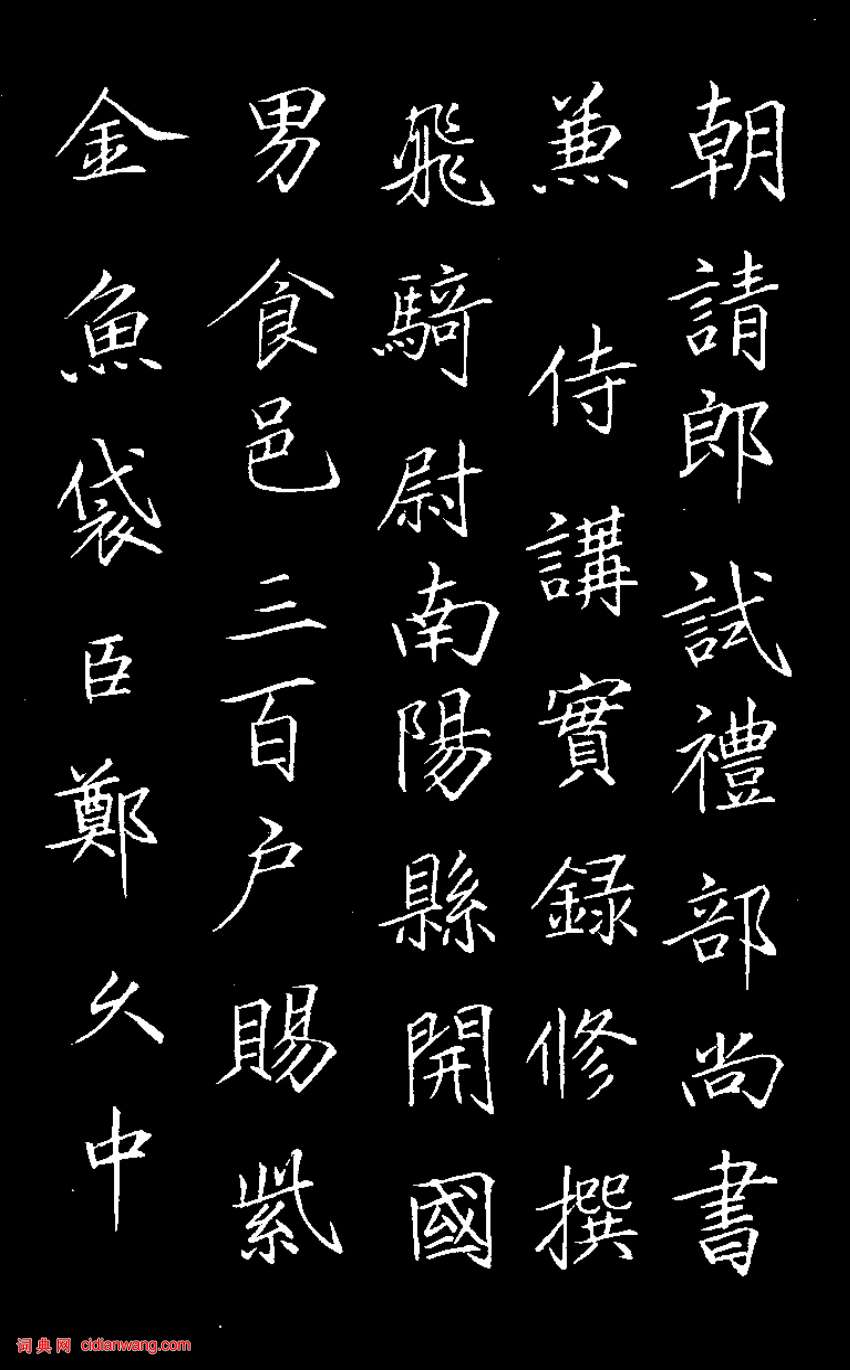 朝請郎試禮部尚書
兼侍講實録修撰
飛騎尉南陽縣開國
男食邑三百户賜紫
金魚袋臣鄭久中
词典网 cidianwang.com